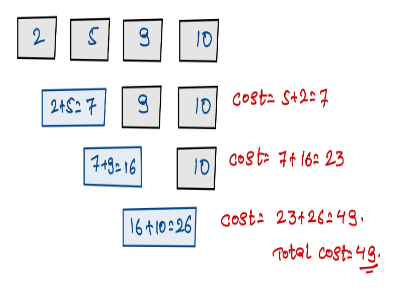 2 5 9 10
2+5=7 9 10 cost= 5+2=7
7+9=16 10 cost= 7+16=23
16+10=26 cost= 23+26=49.
Total cost=49.